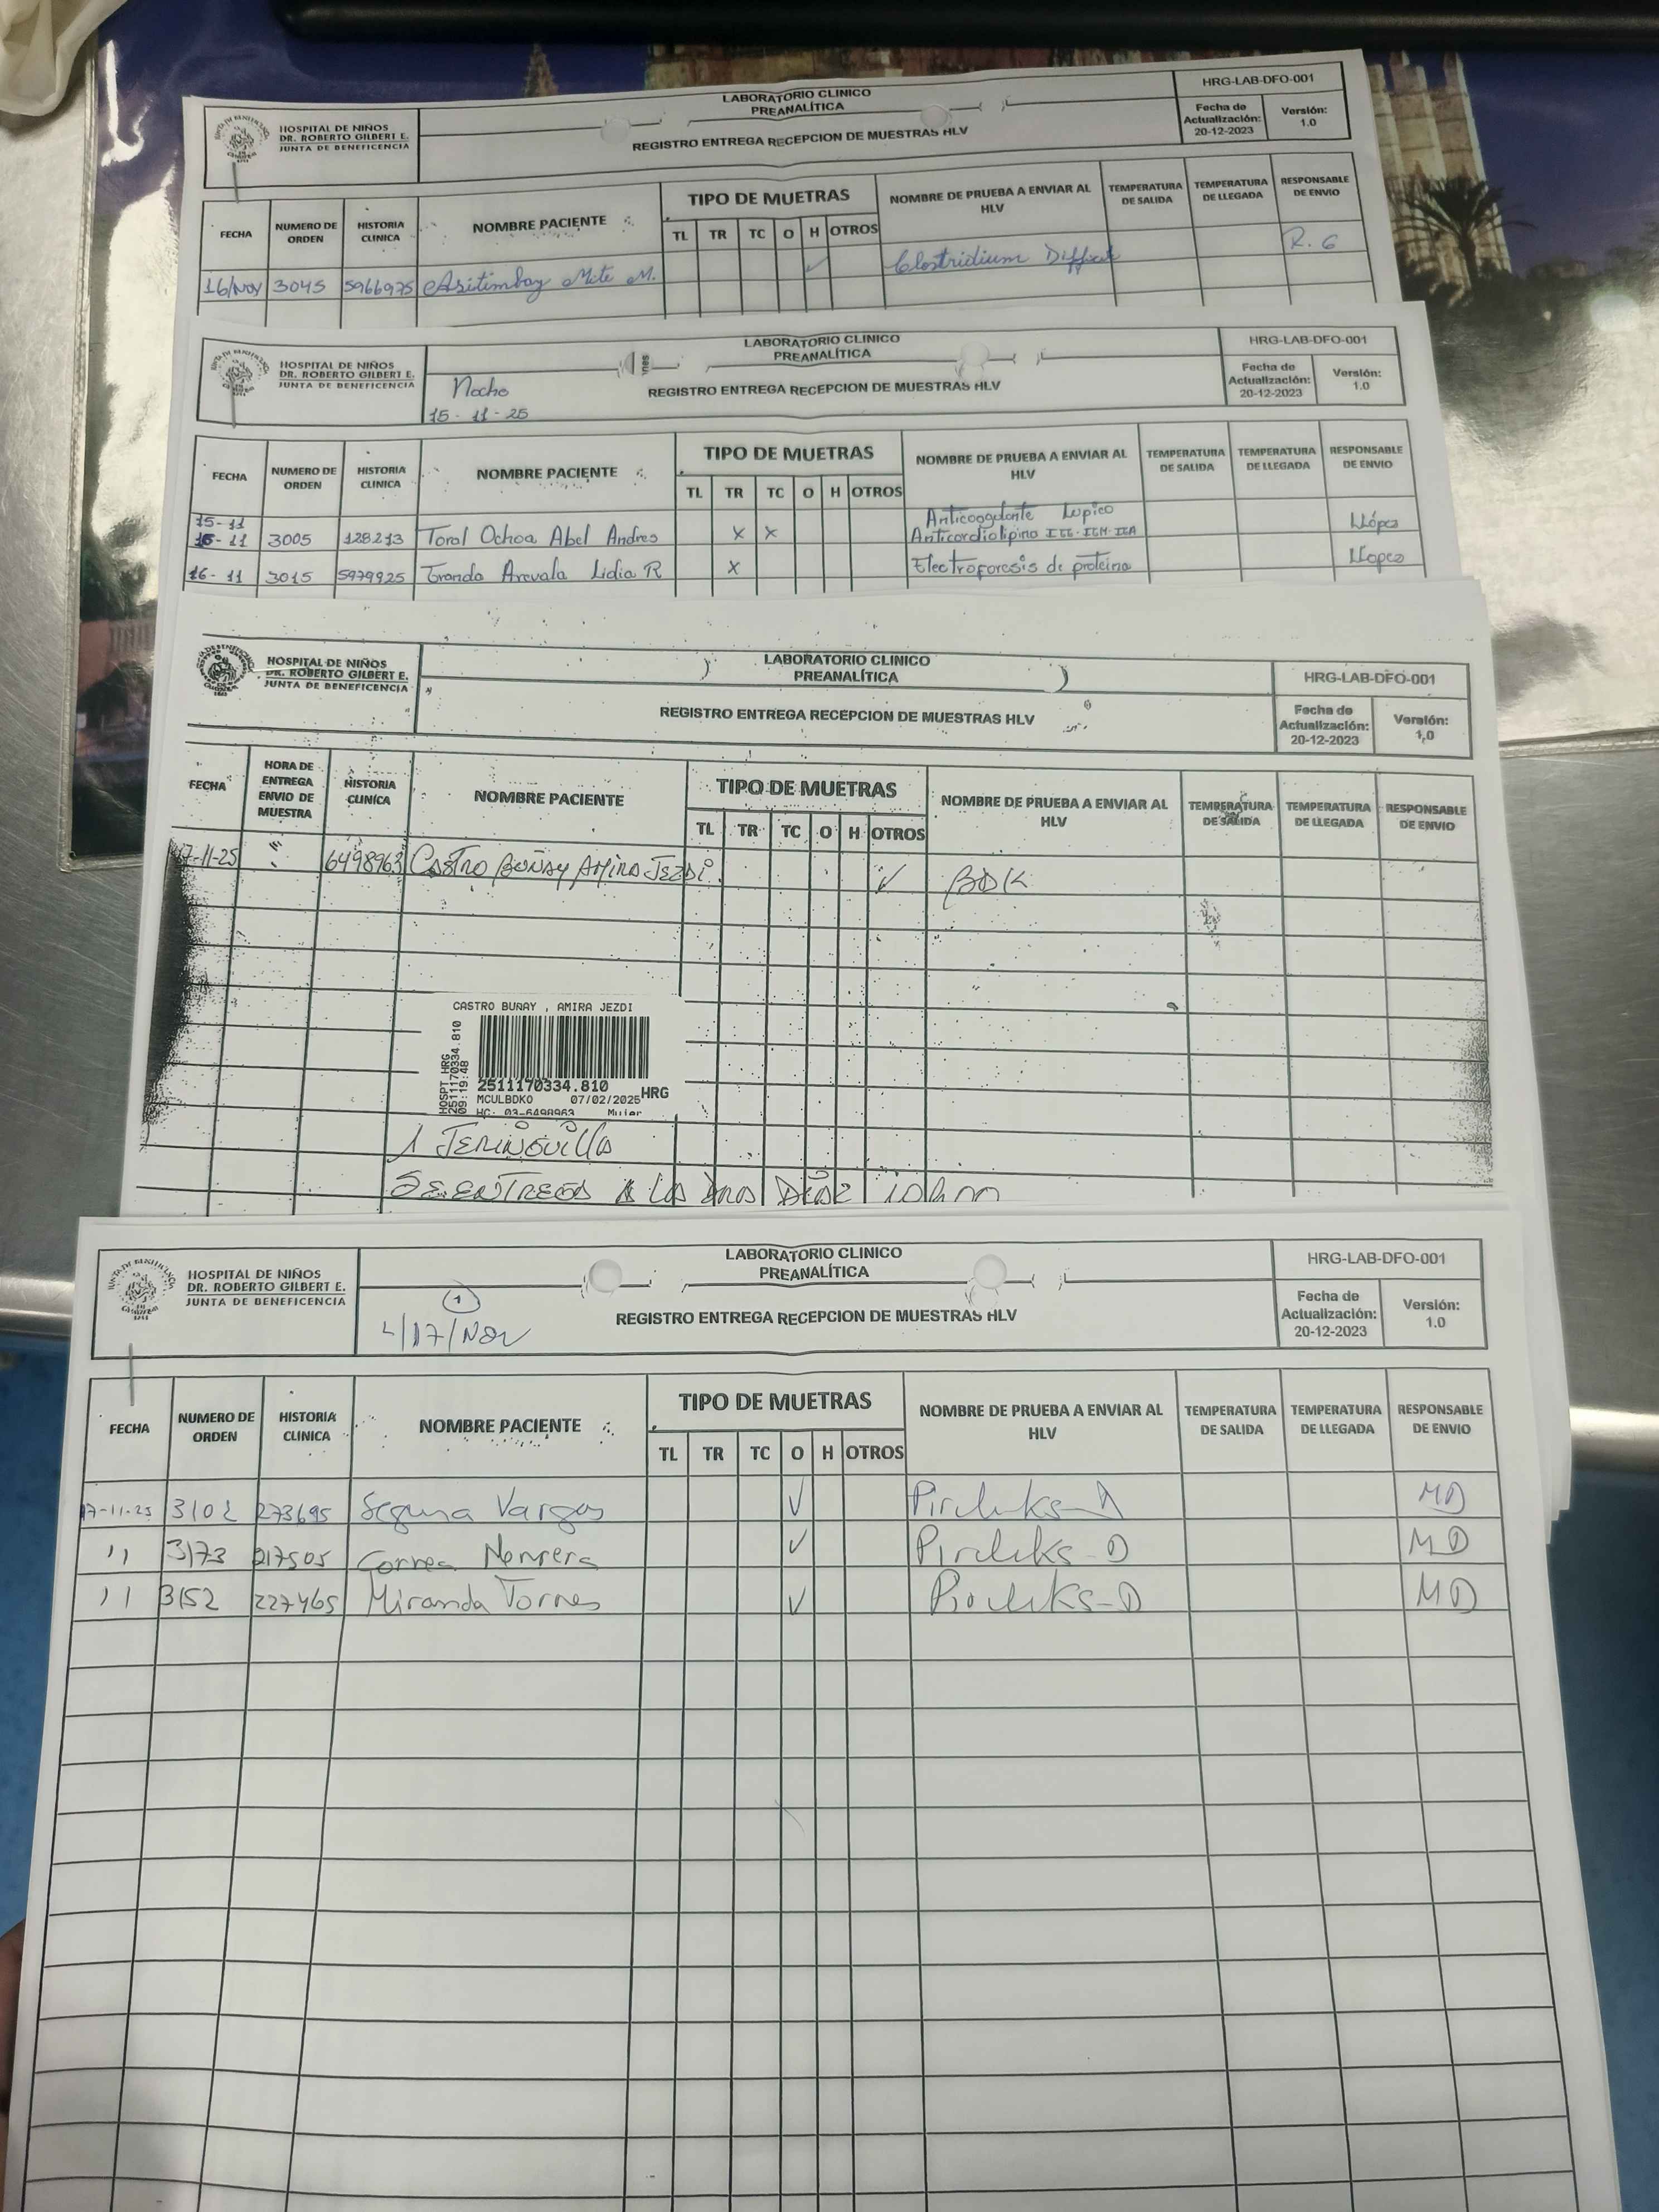 LABORATORIO CLINICO
PREANALÍTICA
HRG-LAB-DFO-001
HOSPITAL DE NIÑOS
DR. ROBERTO GILBERT E.
JUNTA DE BENEFICENCIA
REGISTRO ENTREGA RECEPCION DE MUESTRAS HLV
Fecha de Actualización: 20-12-2023
Versión: 1.0
FECHA NUMERO DE ORDEN HISTORIA CLINICA NOMBRE PACIENTE TIPO DE MUETRAS NOMBRE DE PRUEBA A ENVIAR AL HLV TEMPERATURA DE SALIDA TEMPERATURA DE LLEGADA RESPONSABLE DE ENVIO
TL TR TC O H OTROS
16/Nov 3045 5966975 Asitimbay Mite M. ✓ Clostridium Difficile R. G
LABORATORIO CLINICO
PREANALÍTICA
HRG-LAB-DFO-001
HOSPITAL DE NIÑOS
DR. ROBERTO GILBERT E.
JUNTA DE BENEFICENCIA
Noche
15-11-25
REGISTRO ENTREGA RECEPCION DE MUESTRAS HLV
Fecha de Actualización: 20-12-2023
Versión: 1.0
FECHA NUMERO DE ORDEN HISTORIA CLINICA NOMBRE PACIENTE TIPO DE MUETRAS NOMBRE DE PRUEBA A ENVIAR AL HLV TEMPERATURA DE SALIDA TEMPERATURA DE LLEGADA RESPONSABLE DE ENVIO
TL TR TC O H OTROS
15-11 Anticoagulante Lupico
16-11 3005 128213 Toral Ochoa Abel Andres x x Anticardiolipino IGG-IGM-IGA LLópez
16-11 3015 5979925 Granda Arevala Lidia R x Electroforesis de proteina LLopez
LABORATORIO CLINICO
PREANALÍTICA
HRG-LAB-DFO-001
HOSPITAL DE NIÑOS
DR. ROBERTO GILBERT E.
JUNTA DE BENEFICENCIA
REGISTRO ENTREGA RECEPCION DE MUESTRAS HLV
Fecha de Actualización: 20-12-2023
Versión: 1.0
FECHA HORA DE ENTREGA ENVIO DE MUESTRA HISTORIA CLINICA NOMBRE PACIENTE TIPO DE MUETRAS NOMBRE DE PRUEBA A ENVIAR AL HLV TEMPERATURA DE SALIDA TEMPERATURA DE LLEGADA RESPONSABLE DE ENVIO
TL TR TC O H OTROS
17-11-25 6498963 Castro Buñay Amira Jezdi. ✓ BDK
CASTRO BUÑAY , AMIRA JEZDI
HOSPT HRG
2511170334.810
09:19:48
2511170334.810 HRG
MCULBDKO 07/02/2025
HC: 03-6498963 Mujer
1 Jeringuilla
Se entrega a la Dra Diaz 10h00
LABORATORIO CLINICO
PREANALÍTICA
HRG-LAB-DFO-001
HOSPITAL DE NIÑOS
DR. ROBERTO GILBERT E.
JUNTA DE BENEFICENCIA
1
L/17/Nov
REGISTRO ENTREGA RECEPCION DE MUESTRAS HLV
Fecha de Actualización: 20-12-2023
Versión: 1.0
FECHA NUMERO DE ORDEN HISTORIA CLINICA NOMBRE PACIENTE TIPO DE MUETRAS NOMBRE DE PRUEBA A ENVIAR AL HLV TEMPERATURA DE SALIDA TEMPERATURA DE LLEGADA RESPONSABLE DE ENVIO
TL TR TC O H OTROS
17-11-25 3102 273695 Segura Vargas ✓ MD
11 3173 217505 Correa Herrera ✓ MD
11 3152 227465 Miranda Torres ✓ MD